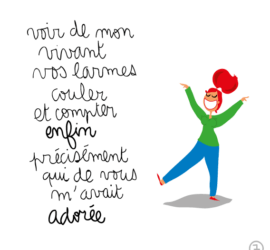 voir de mon
vivant
vos larmes
couler
et compter
enfin
précisément
qui de vous
m'avait
adorée